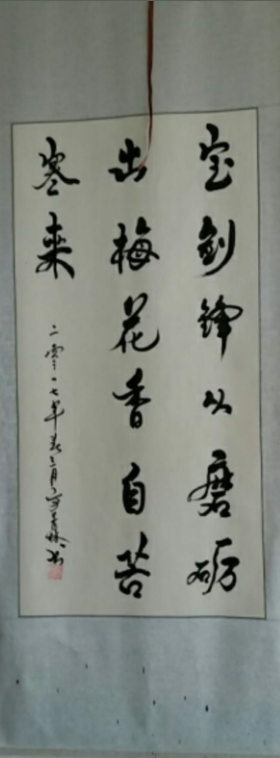 宝剑锋从磨砺
出梅花香自苦
寒来
二零一七年春三月